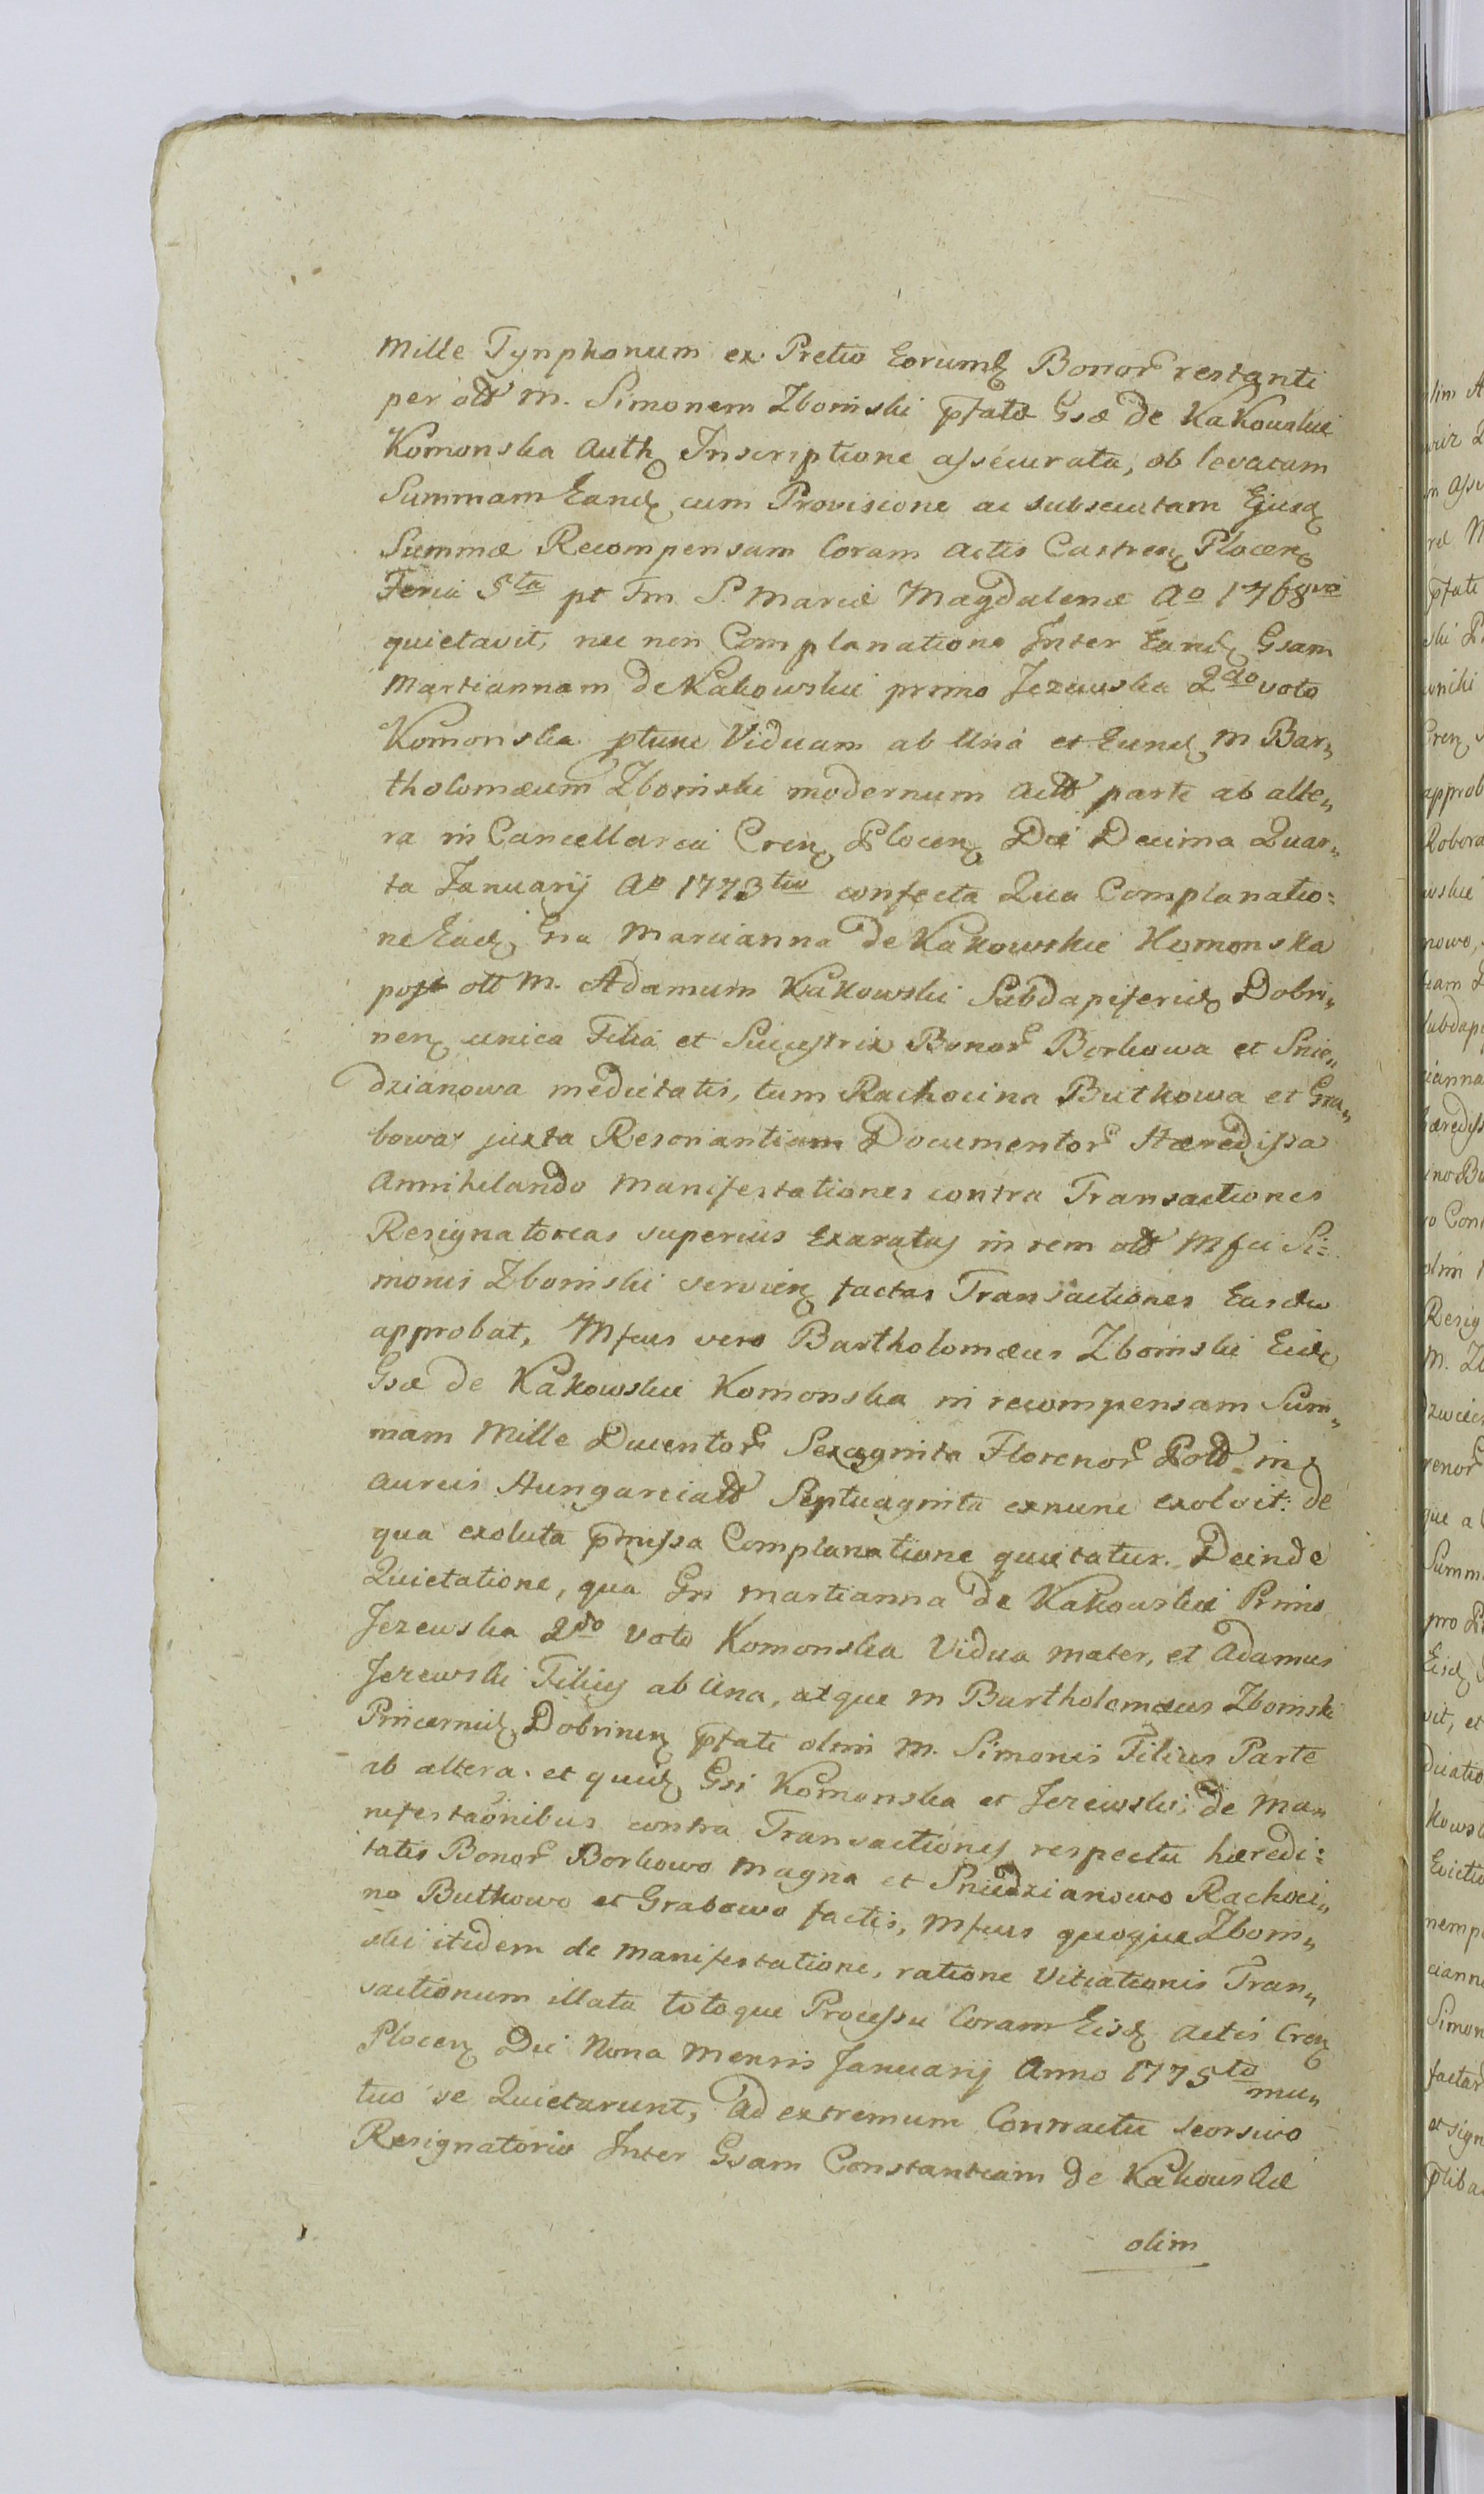 Mille Tynphonum ex Pretio Eorumq Bonor restanti
per olt M. Simonem Zboinski ptatæ Gsæ de Kakowskie
Komonska Auth Inscriptione assecurata, ob levatam
Summam Eand cum Provisione ac subsecutam Ejusd
Summæ Recompensam Coram Actis Castren Plocen
Feria 5ta pt Fm S. Mariæ Magdalenæ Ao 1768vo
quietavit, nec non Complanatione Inter Eand Gsam
Martiannam de Kakowskie primo Jezewska 2do voto
Komonska ptunc Viduam ab Una et Eund M Bar„
tholomæum Zboinski modernum Actt parte ab alte„
ra in Cancellaria Cren Plocen Die Decima Quar„
ta Januarij Ao 1773tio confecta Qua Complanatio:
ne Ead Gsa Marcianna de Kakowskie Komonska
post olt M. Adamum Kakowski Subdapiferid Dobri„
nen unica Filia et Sucestrix Bonor Borkowa et Snie„
dzianowa medietatis, tum Rachocina Butkowa et Gra„
bowa juxta Resonantiam Documentor Hæredissa
Annihilando Manifestationes contra Transactiones
Resignatorias superius Exaratas in rem olt Mfci Si:
monis Zboinski servien factas Transactiones Easdem
approbat, Mfcus vero Bartholomæus Zboinski Eid
Gsæ de Kakowskie Komonska in recompensam Sum„
mam Mille Ducentor Sexagnita Florenor Poltt in
Aureis Hungaricaltt Septuagnita exnunc exolvit: de
qua exoluta pmissa Complanatione quietatur. Deinde
Quietatione, qua Gsi Martianna de Kakowskie Primo
Jezewska 2do voto Komonska Vidua Mater, et Adamus
Jezewski Filius ab Una, atque M Bartholomæus Zboinski
Pincernid Dobrinen ptati olim M. Simonis Filius Parte
ab altera. et quid Gsi Komonska et Jezewski, de Ma„
nifestaonibus contra Transactiones respectu hæredi:
tatis Bonor Borkowo Magna et Sniedzianowo Rachoci„
no Butkowo et Grabowo factis, Mfcus quoque Zboin„
ski itidem de Manifestatione, ratione Vitiationis Tran„
sactionum illata totoque Processu Coram Eisd Actis Cren
Plocen Die Nona Mensis Januarij Anno 1775to mu„
tuo se Quietarunt, Ad extremum Contractu seorsivo
Resignatorio Inter Gsam Constantiam de Kakowskie
olim